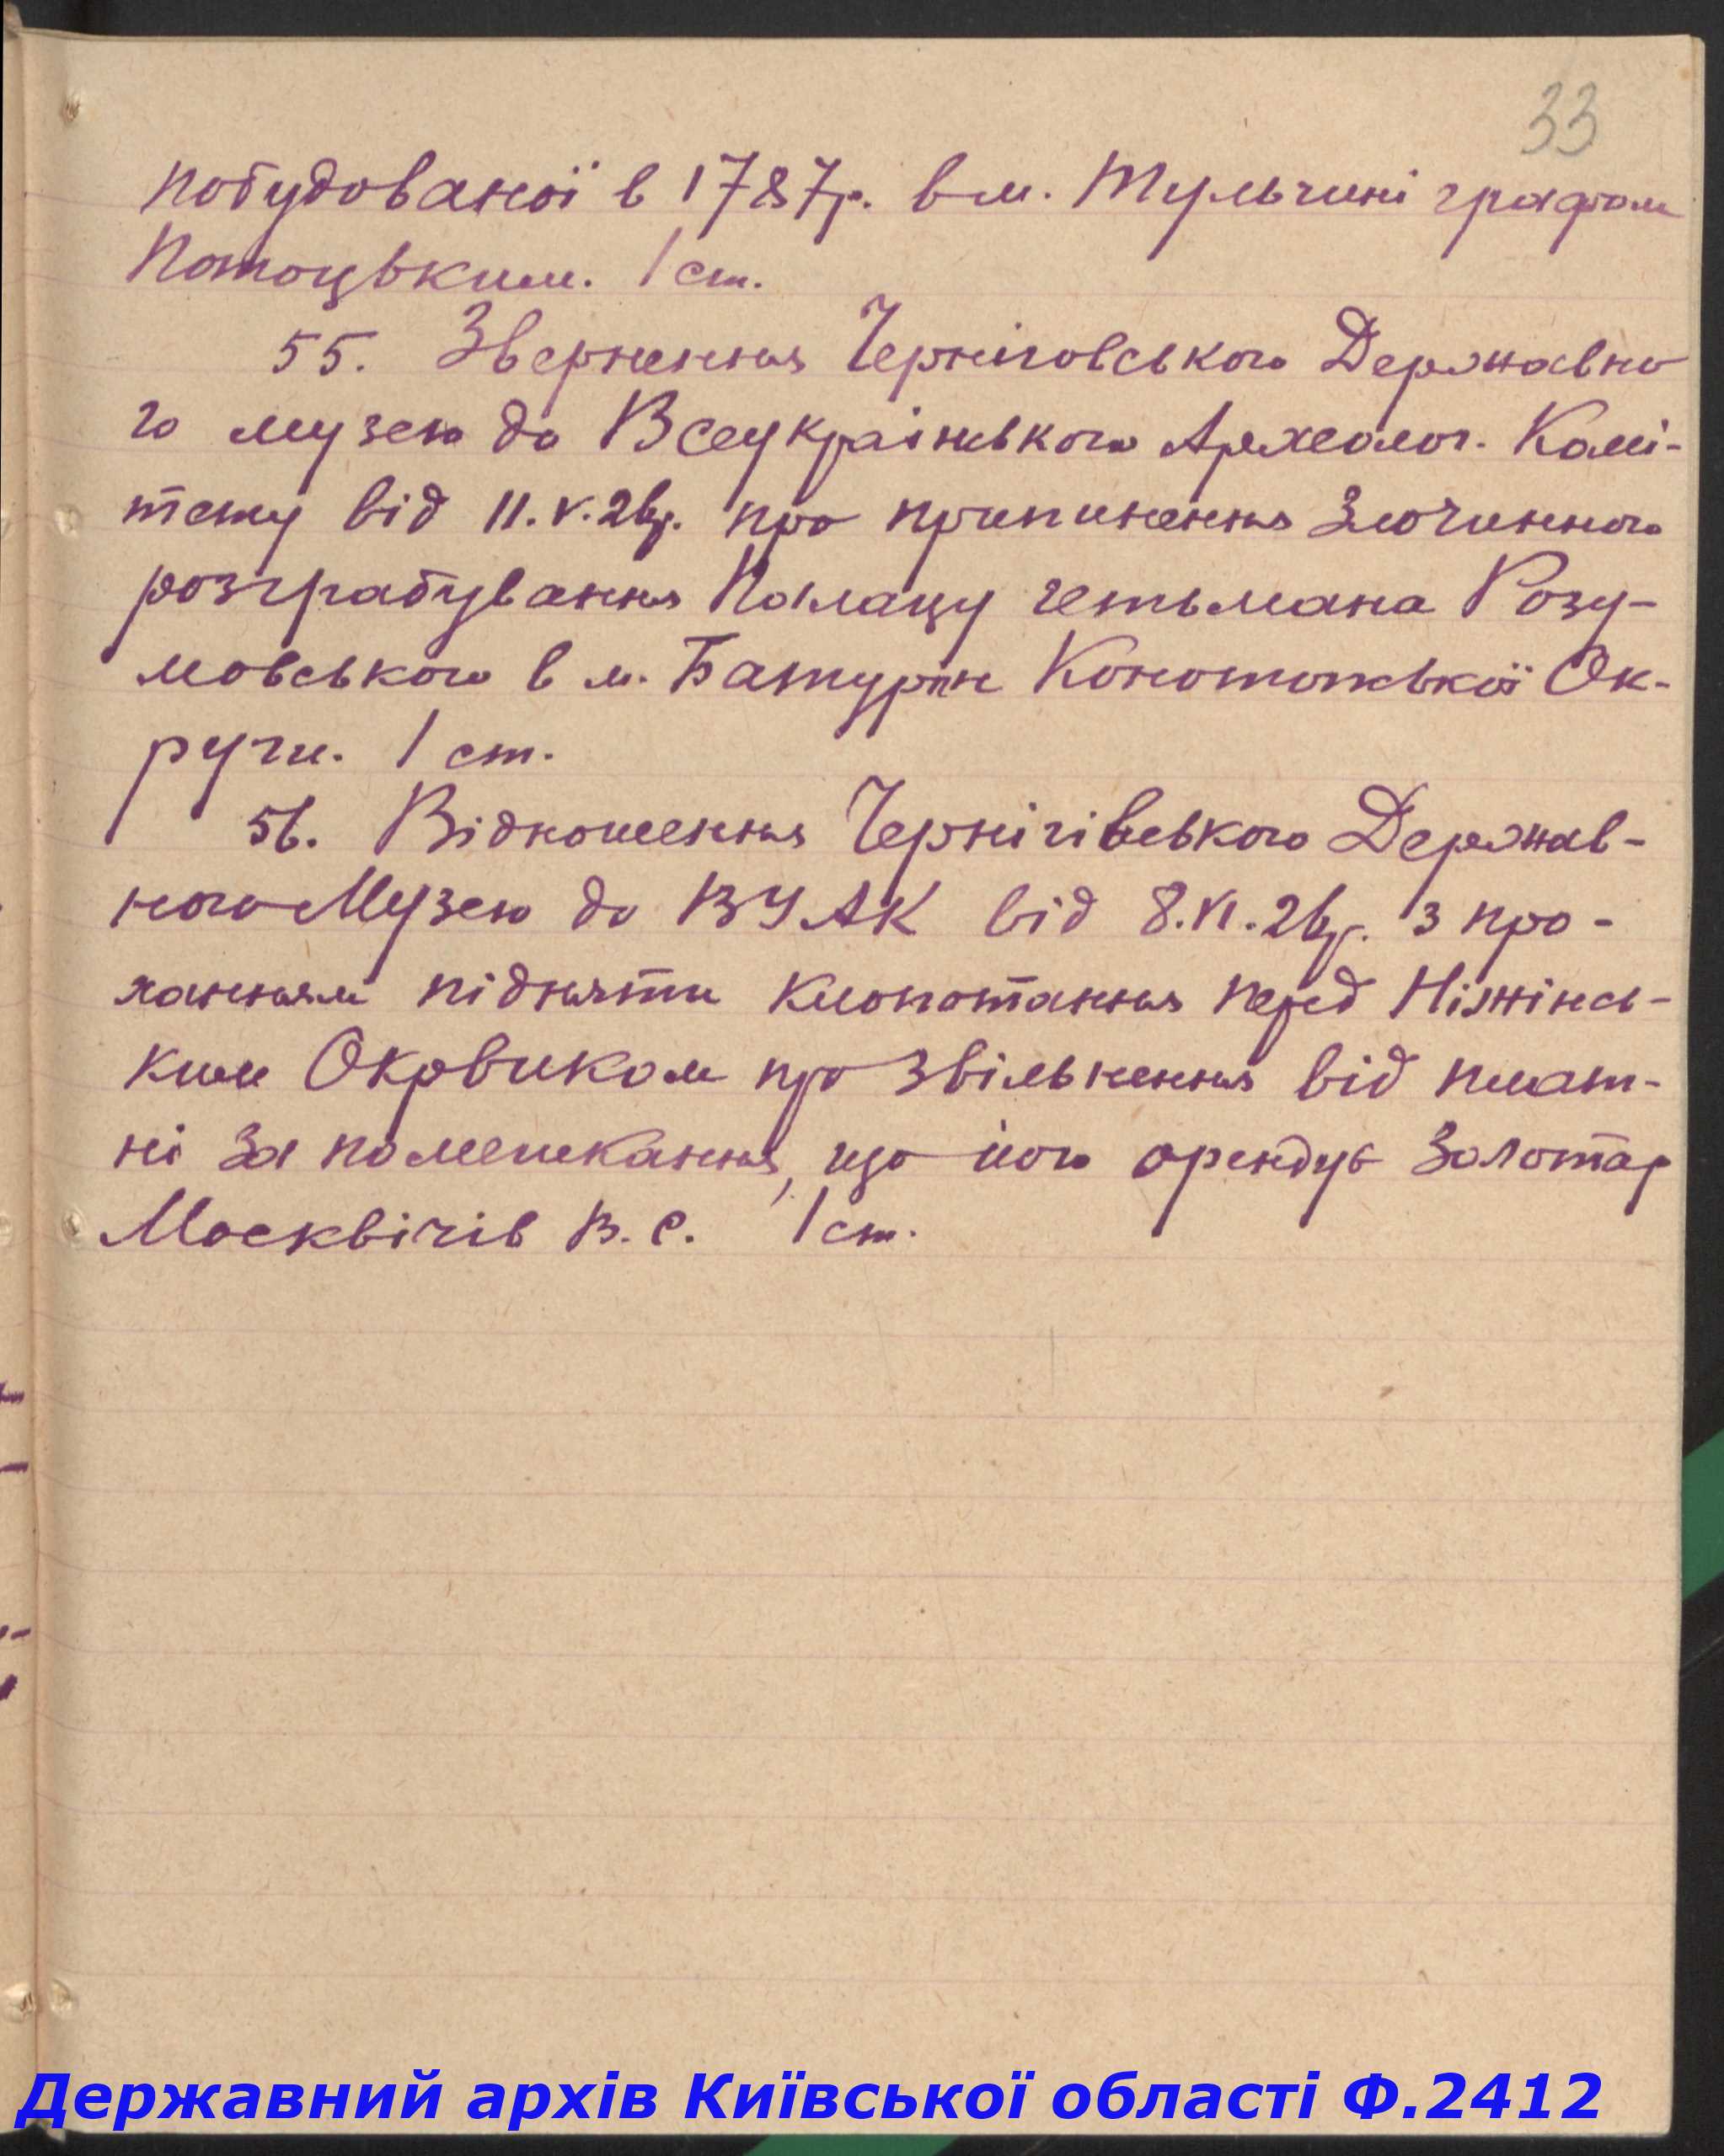 33
побудованої в 1787р. в м. Тульчині графом
Потоцьким. 1 ст.
55. Звернення Чернiговського Державно
го музею до Всеукраінського Археолог. Комі-
тету від 11.V.26р. про припинення злочинного
розграбування Палацу гетьмана Розу-
мовського в м. Батурин Конотопської Ок-
руги. 1 ст.
56. Відношення Чернігівського Держав-
ного Музею до ВУАК від 8.VI.26р. з про-
ханням підняти клопотання перед Ніжінсь-
ким Окрвиком про звільнення від плат-
ні за помешкання, що його орендує Золотар
Москвічів В. С. 1 ст.
Державний архів Київської області Ф.2412